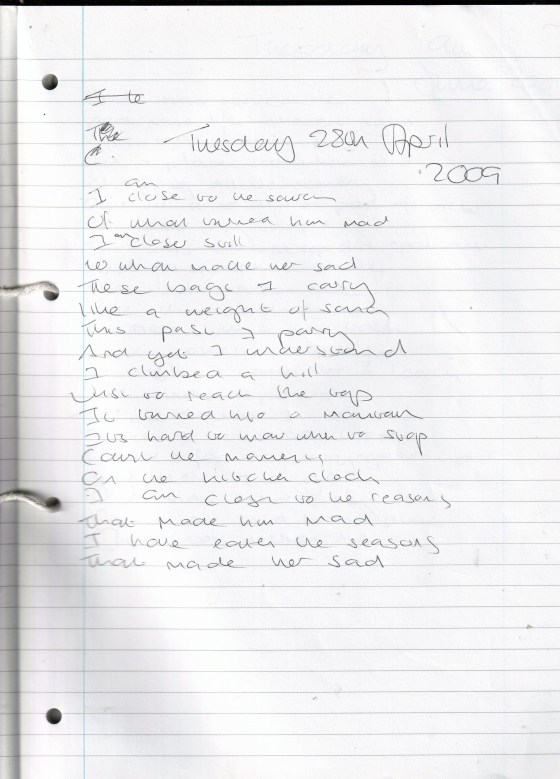 I te
The
C.
Tuesday 28th April
2009
I am close to the
Of what turned him mad
I am closer still
to what made her sad
These bags I carry
like a weight of sand
This past I parry
And yet I understand
I climbed a hill
Just to reach the top
It turned into a mountain
Its hard to know when to stop
Count the moments
On the kitchen clock
I am close to the reasons
That made him mad
I have eaten the seasons
That made her sad